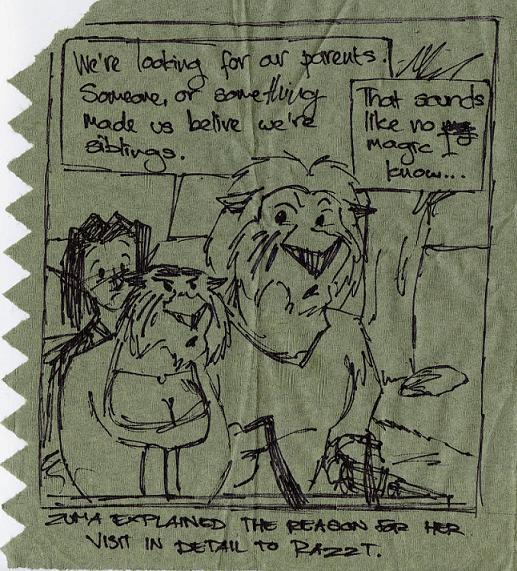 We're looking for our parents.
Someone, or something
made us belive we're
siblings.
That sounds
like no
magic I
know...
ZUMA EXPLAINED THE REASON FOR HER
VISIT IN DETAIL TO RAZZT.